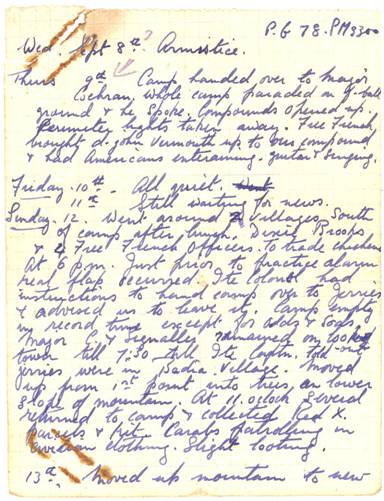 P.G 78. PM 3300
Wed. Sept 8th? Armistice.
Thurs 9th Camp handed over to Major
Cochran, whole camp paraded on f. ball
ground & he spoke. Compounds opened up.
Perimeter lights taken away. Free French
brought d. john Vermouth up to our compound
& had Americans entertaining. guitar & singing.
Friday. 10th. All quiet.
11th Still waiting for news.
Sunday. 12. Went around villages South
of camp after lunch. Brooks
& 2 Free French Officers. to trade chickens
At 6 p.m. Just prior to practice alarm
real flap occurred. Ite Colonel had
instructions to hand camp over to Jerries
& advised us to leave it. Camp empty
in record time except for odds & sods.
Major C. & Signaller remained on lookout
tower till 7:30 till Ite Captn. told
jerries were in Badia Village. Moved
up from 1st point into trees, on lower
slope of mountain. At 11. oclock several
returned to camp & collected Red X.
parcels & Kit. Carabs patrolling in
civilian clothing. Slight looting.
13th. Moved up mountain to new